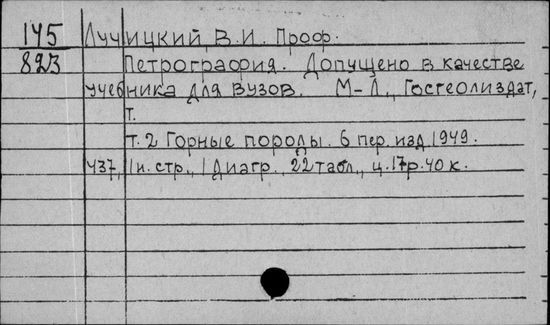 145 Лучицкий, В.И. Проф.
823 Петрография. Допущено в качестве
учебника для вузов. М-Л., Госгеолиздат,
т.
т.2 Горные породы. 6 пер. изд. 1949.
437, 1 н. стр., 1 диагр., 22 табл., ц. 17р. 40 к.